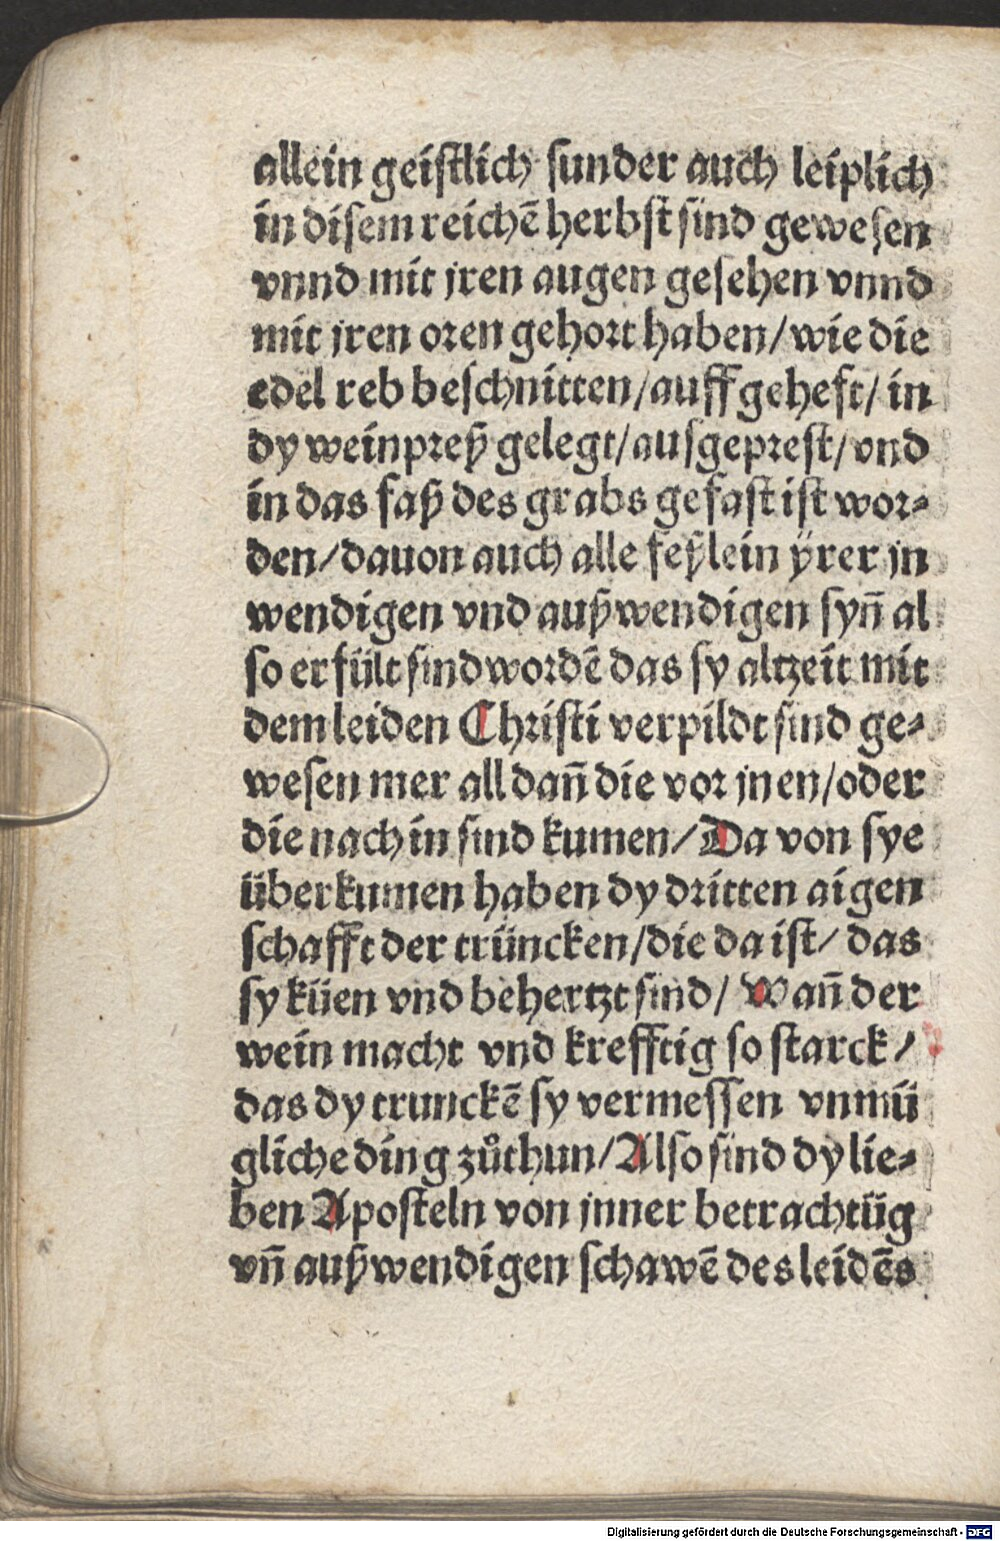 allein geistlich sunder auch leiplich
in disem reichē herbst sind gewesen
vnnd mit jren augen gesehen vnnd
mit jren oren gehort haben/wie die
edel reb beschnitten/auffgeheft/ in
dy weinpreß gelegt/ausgeprest/vnd
in das faß des grabs gefast ist wor⸗
den/dauon auch alle feßlein ÿrer jn
wendigen vnd außwendigen syn̄ al
so erfült sind wordē das sy altzeit mit
dem leiden Christi verpildt sind ge⸗
wesen mer all dan̄ die vor jnen/oder
die nach in sind kumen/Da von sye
überkumen haben dy dritten aigen
schafft der trüncken/die da ist/ das
sy küen vnd behertzt sind/ Wan̄ der
wein macht vnd krefftig so starck/
das dy trunckē sy vermessen vnmü
gliche ding zůthun/Also sind dy lie⸗
ben Aposteln von jnner betrachtūg
vn̄ außwendigen schawē des leidēs
Digitalisierung gefördert durch die Deutsche Forschungsgemeinschaft - DFG